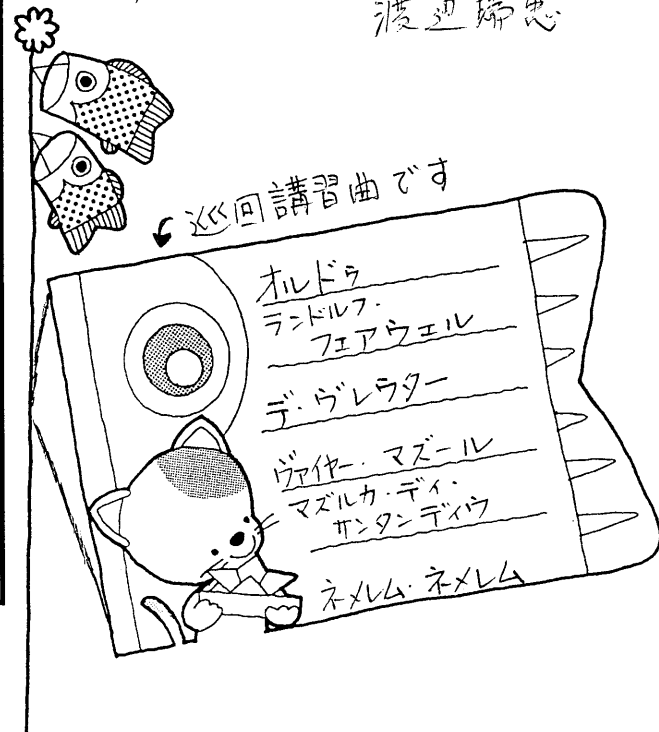 渡辺瑞恵
巡回講習曲です
オルドゥ
ランドルフ・
フェアウェル
デ・ヴレウター
ヴァイヤー・マズール
マズルカ・ディ・
サンタンディウ
ネメレム・ネメレム